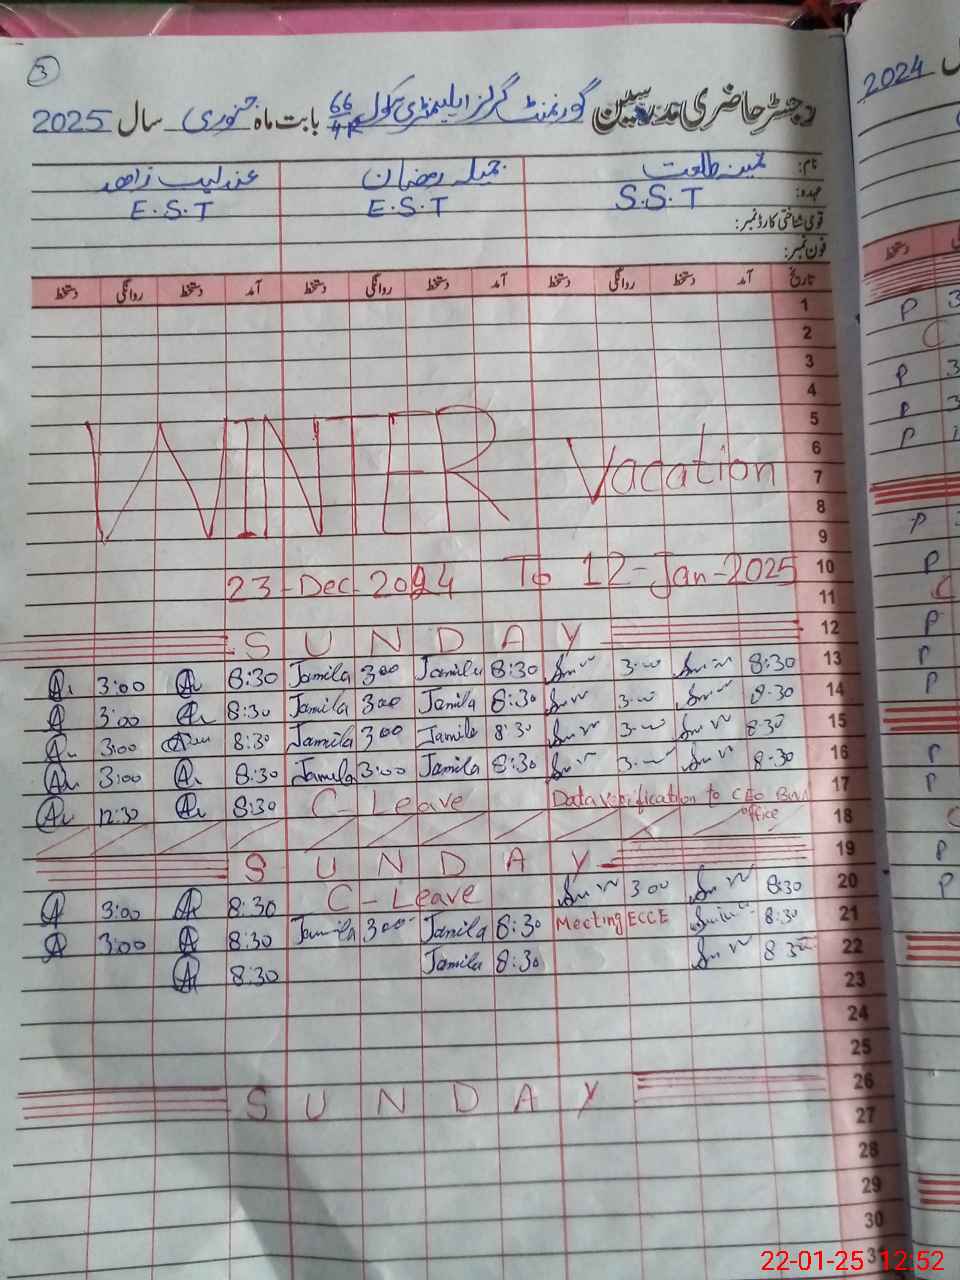 3
رجسٹر حاضری مدرسین گورنمنٹ گرلز ایلیمنٹری سکول 66/4R بابت ماہ جنوری سال 2025
نام: ثمینہ طلعت جمیلہ رمضان عندلیب زاھد
عہدہ: S.S.T E.S.T E.S.T
قومی شناختی کارڈ نمبر:
فون نمبر:
تاریخ آمد دستخط روانگی دستخط آمد دستخط روانگی دستخط آمد دستخط روانگی دستخط
1
2
3
4
5
6
WINTER Vacation 7
8
9
23-Dec-2024 To 12-Jan-2025 10
11
SUNDAY 12
3:00 8:30 Jamila 3:00 Jamila 8:30 3:00 8:30 13
3:00 8:30 Jamila 3:00 Jamila 8:30 3:00 8:30 14
3:00 8:30 Jamila 3:00 Jamila 8:30 3:00 8:30 15
3:00 8:30 Jamila 3:00 Jamila 8:30 3:00 8:30 16
12:30 8:30 C-Leave Data verification to CEO office 17
18
SUNDAY 19
3:00 8:30 C-Leave 3:00 8:30 20
3:00 8:30 Jamila 3:00 Jamila 8:30 Meeting ECCE 8:30 21
8:30 Jamila 8:30 8:30 22
23
24
25
SUNDAY 26
27
28
29
30
31
2024
دستخط
P 3
C
P 3
P 3
P
P
P
C
P
P
P
P
P
C
P
P
22-01-25 12:52